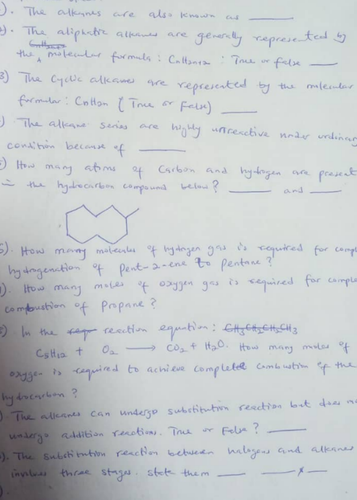 ). The alkanes are also known as ____
). The aliphatic alkanes are generally represented by
the molecular formula : CnH2n+2 : True or false ____
3) The cyclic alkanes are represented by the molecular
formula : CnH2n (True or False) ____
The alkane series are highly unreactive under ordinary
condition because of ____
) How many atoms of Carbon and hydrogen are present
in the hydrocarbon compound below? ____ and ____
). How many molecules of hydrogen gas is required for comp
hydrogenation of Pent-2-ene to Pentane?
). How many moles of oxygen gas is required for complete
combustion of Propane?
) In the reaction equation : CH3CH2CH2CH3
C5H12 + O2 → CO2 + H2O. How many moles of
oxygen is required to achieve complete combustion of the
hydrocarbon?
). The alkanes can undergo substitution reaction but does no
undergo addition reactions. True or False? ____
). The substitution reaction between halogens and alkanes
involves three stages. state them ____ ____